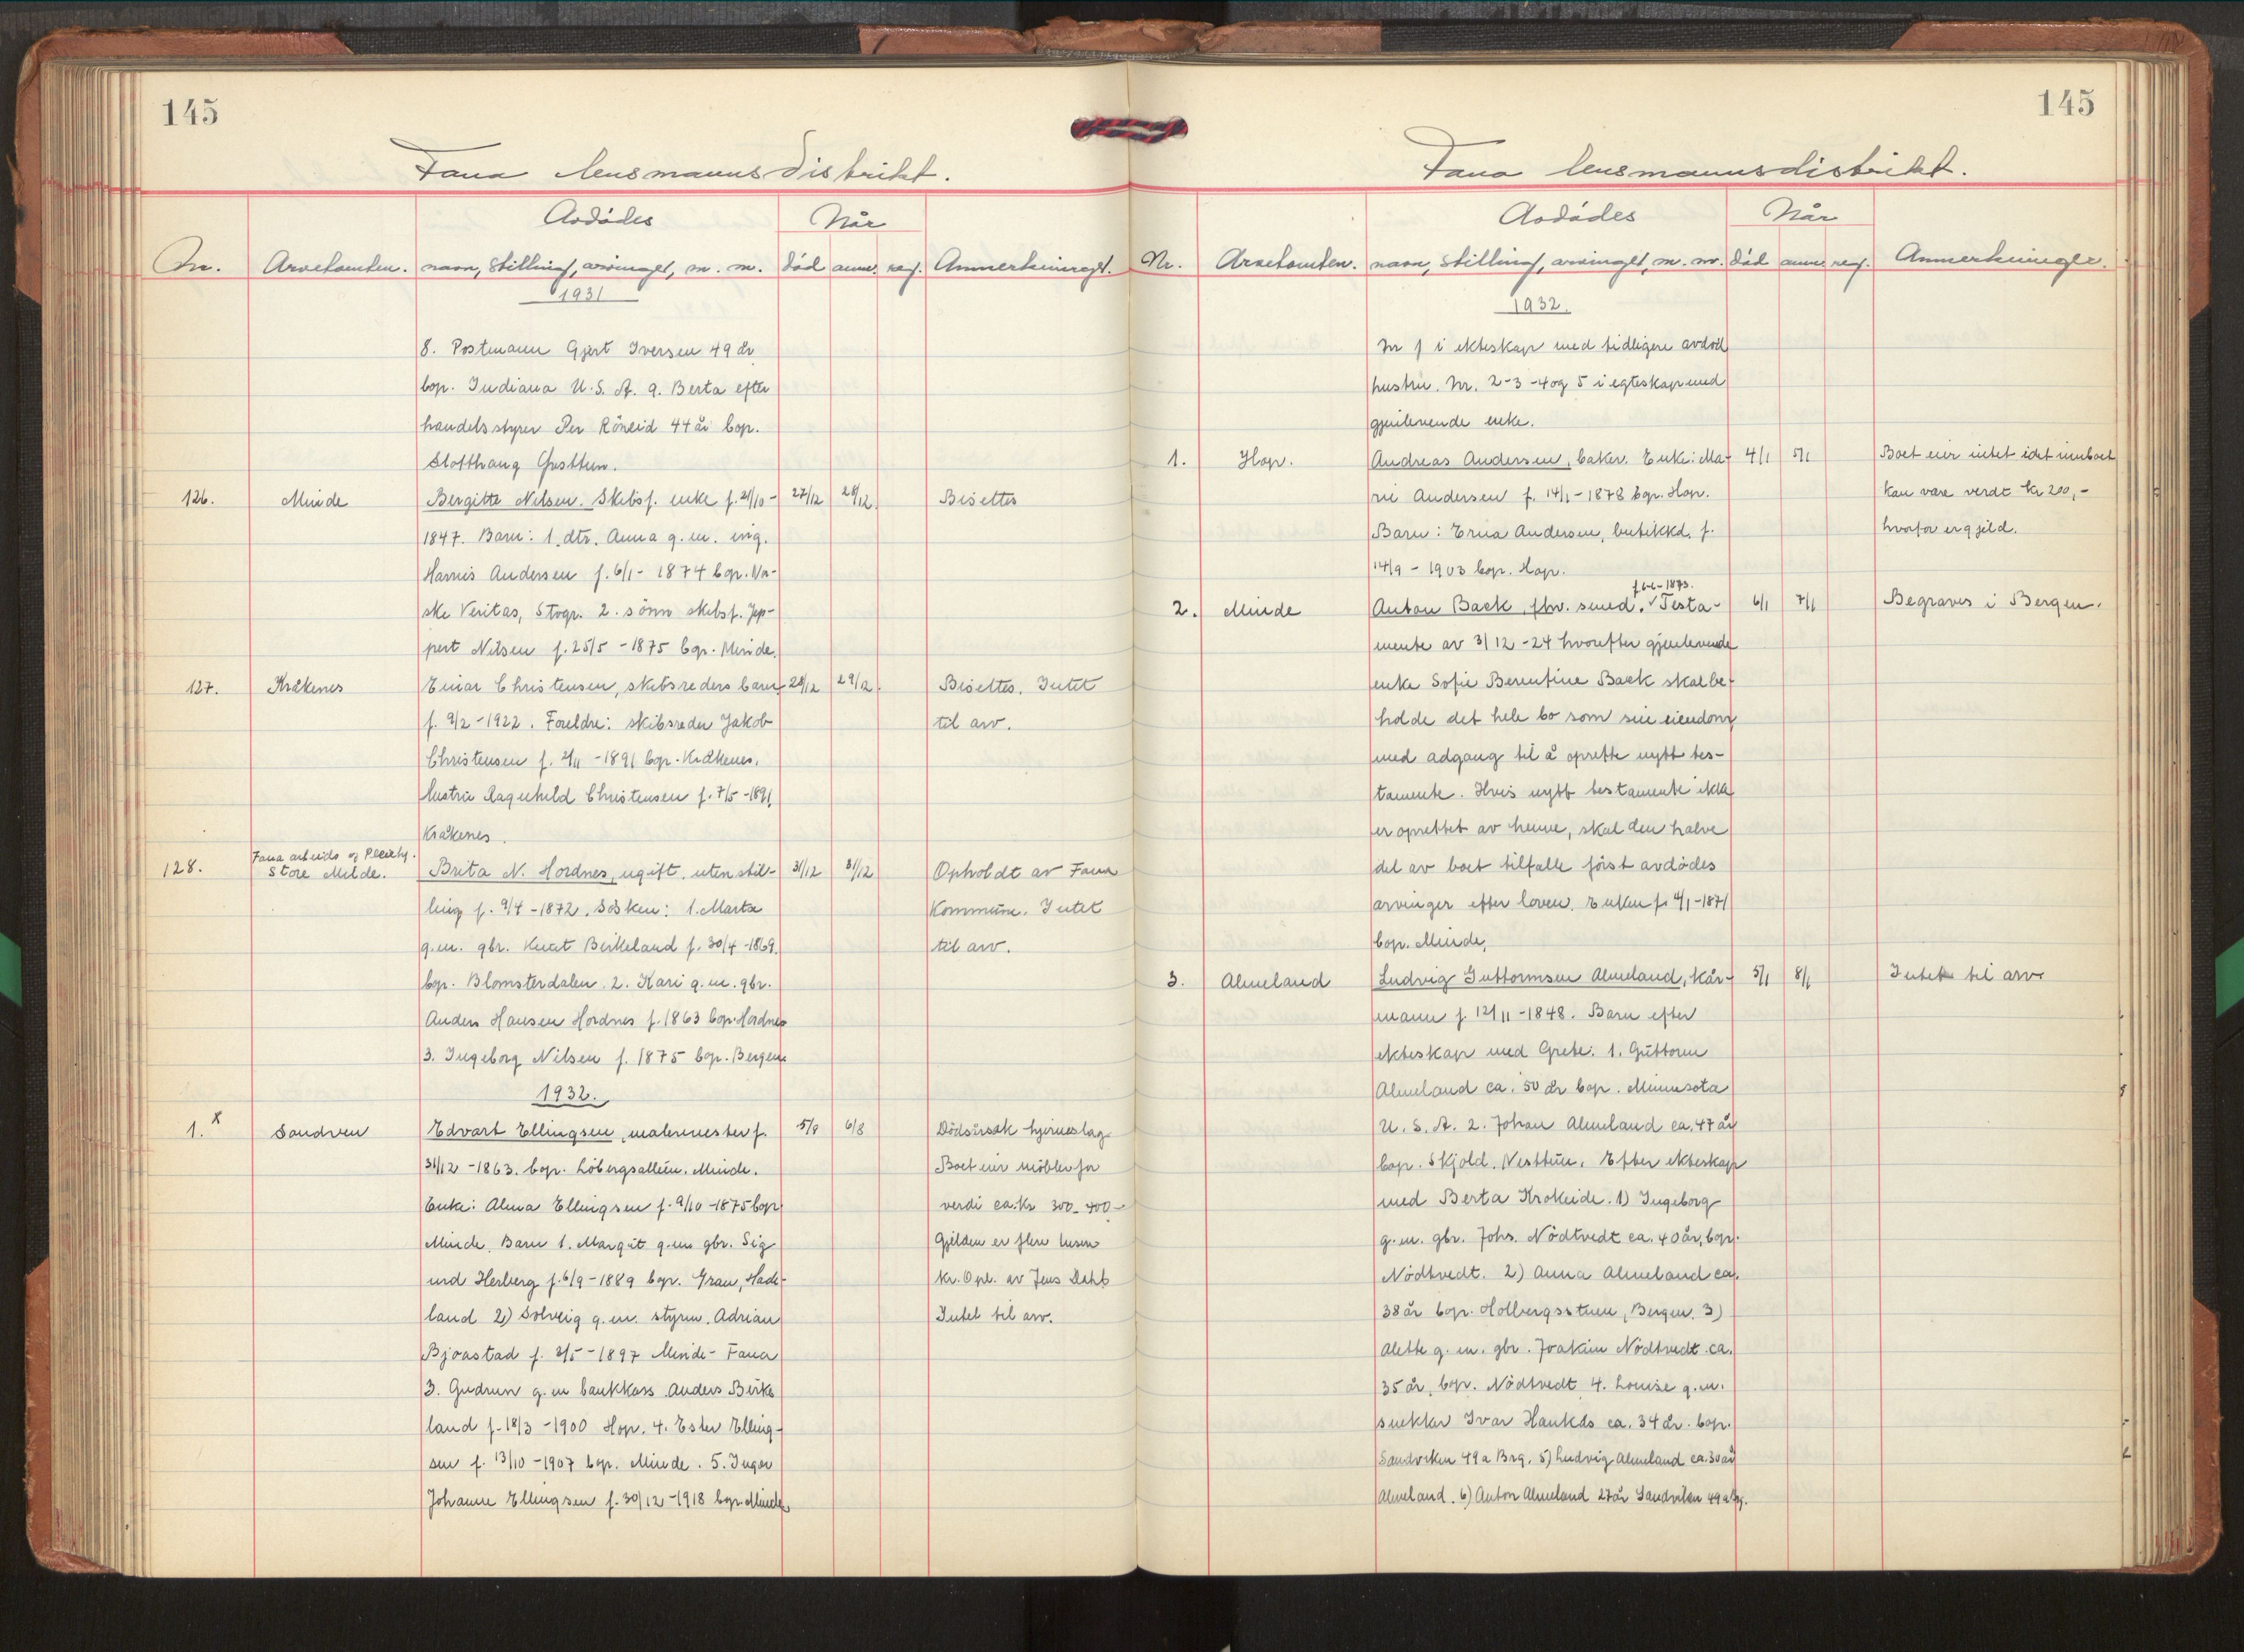 145
Fana lensmannsdistrikt.
Avdødes
Når
Nr. Arvetomten. navn, stilling, arvinger, m. m. død anm. reg. Anmerkninger.
1931
8. Postmann Gjert Iversen 49 år
bop. Indiana U.S.A. 9. Berta efter
handelsstyrer Per Röneid 44 år bop.
Slotthaug
126. Minde Bergitte Nilsen. Skibsf. enke f. 21/10- 27/12 28/12. Bisettes
1847. Barn: 1. dtr. Anna g. m. ing.
Andersen f. 6/1 - 1874 bop. No-
ske Veritas, 2. sönn skibsf. Jep-
pert Nilsen f. 25/5 - 1875 bop. Minde.
127. Kråkenes Einar Christensen, skibsreders barn 28/12 29/12. Bisettes. Intet
f. 9/2 - 1922. Foreldre: skibsreder Jakob til arv.
Christensen f. 2/11 - 1891 bop. Kråkenes.
Hustru Ragnhild Christensen f. 7/5 - 1891,
Kråkenes.
Fana arbeids og
128. Store Milde. Brita N. Hordnes, ugift, uten stil- 31/12 31/12 Opholdt av Fana
ling f. 9/4 - 1872. Søsken: 1. Marta Kommune. Intet
g.m. gbr. Knut Birkeland f. 30/4 - 1869. til arv.
bop. Blomsterdalen. 2. Kari g. m. gbr.
Anders Hansen Hordnes f. 1863 bop. Hordnes
3. Ingeborg Nilsen f. 1875 bop. Bergen.
1932.
1. x Sandven Edvart Ellingsen, malermester f. 5/8 6/8 Dödsårsak hjerneslag
31/12 - 1863. bop. Löbergsalleen. Minde. Boet eier möbler for
Enke: Alma Ellingsen f. 9/10 - 1875 bop. verdi ca. kr 300-400-
Minde. Barn 1. Margit g.m. gbr. Sig Gjelden er flere tusen
urd Herberg f. 6/9 - 1889 bop. Gran, Hade- kr. Opl. av Jens Dahl
land 2) Solveig g. m. styrm. Adrian Intet til arv.
Bjoastad f. 2/5 - 1897 Minde - Fana
3. Gudrun g. m bankkass. Anders Birke
land f. 18/3 - 1900 Hop. 4. Ester Elling-
sen f. 13/10 - 1907 bop. Minde. 5. Inger
Johanne Ellingsen f. 30/12 - 1918 bop. Minde
145
Fana lensmannsdistrikt.
Avdødes
Når
Nr. Arvetomten. navn, stilling, arvinger, m. m. død anm. reg. Anmerkninger.
1932.
Nr 1 i ekteskap med tidligere avdöd
hustru. Nr. 2-3-4 og 5 i egteskap med
gjenlevende enke.
1. Hop. Andreas Andersen, baker. Enke: Ma- 4/1 5/1 Boet eier intet idet innboet
rie Andersen f. 14/1 - 1878 bop. Hop. kan være verdt kr 200,-
Barn: Erna Andersen, butikkd. f. hvorfor er gjeld.
14/9 - 1903 bop. Hop.
f 6-6-1873.
2. Minde Anton Back, fhv. smed. √ Testa- 6/1 7/1 Begraves i Bergen.
mente av 3/12 - 24 hvorefter gjenlevende
enke Sofie Berentine Back skal be-
holde det hele bo som sin eiendom
med adgang til å oprette nytt tes-
tamente. Hvis nytt testamente ikke
er oprettet av henne, skal den halve
del av boet tilfalle först avdödes
arvinger efter loven. Enken f. 4/1 - 1871
bop. Minde.
3. Almeland Ludvig Guttormsen Almeland, kår- 5/1 8/1 Intet til arv
mann f. 12/11 - 1848. Barn efter
ekteskap med Grete: 1. Guttorm
Almeland ca. 50 år bop. Minnesota
U. S. A. 2. Johan Almeland ca. 47 år
bop. Skjold. Nesttun. Efter ekteskap
med Berta Krokeide. 1) Ingeborg
g. m. gbr. Johs. Nödtvedt ca. 40 år, bop.
Nödtvedt. 2) Anna Almeland ca.
38 år bop. Holbergsstuen, Bergen. 3)
Alette g. m. gbr. Joakim Nödtvedt ca.
35 år, bop. Nödtvedt 4. Louise g. m.
snekker Ivar ca. 34 år. bop.
Sandviken 49 a Brg. 5) Ludvig Almeland ca. 30 år
Almeland. 6) Anton Almeland 27 år Sandviken 49 a Brg.